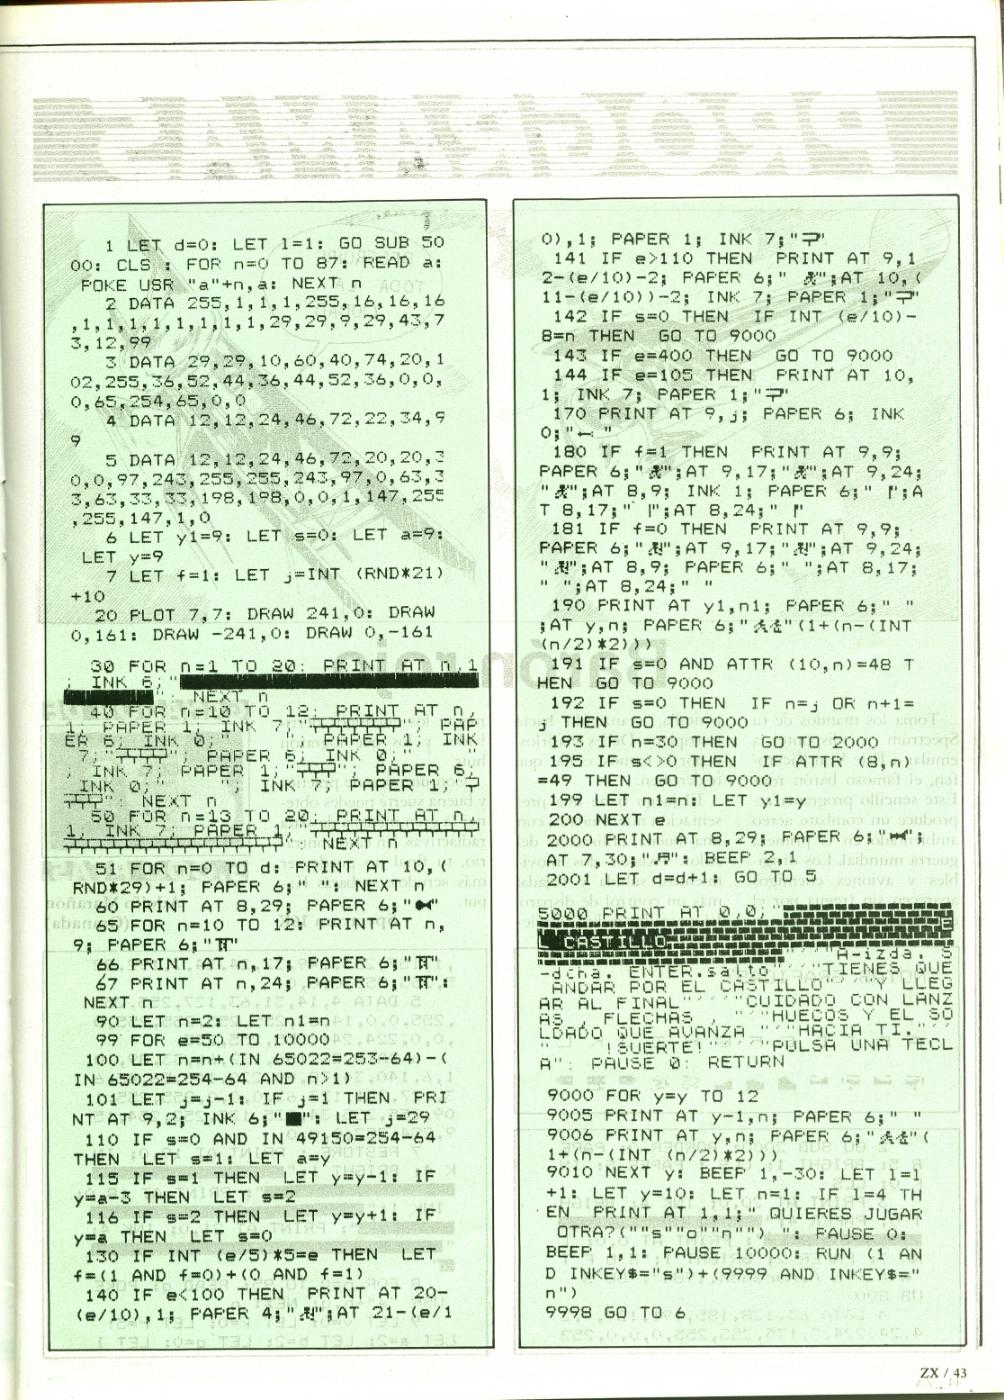 1 LET d=0: LET l=1: GO SUB 50
00: CLS : FOR n=0 TO 87: READ a:
POKE USR "a"+n,a: NEXT n
2 DATA 255,1,1,1,255,16,16,16
,1,1,1,1,1,1,1,1,29,29,9,29,43,7
3,12,99
3 DATA 29,29,10,60,40,74,20,1
02,255,36,52,44,36,44,52,36,0,0,
0,65,254,65,0,0
4 DATA 12,12,24,46,72,22,34,9
9
5 DATA 12,12,24,46,72,20,20,3
0,0,97,243,255,255,243,97,0,63,3
3,63,33,33,198,198,0,0,1,147,255
,255,147,1,0
6 LET y1=9: LET s=0: LET a=9:
LET y=9
7 LET f=1: LET j=INT (RND*21)
+10
20 PLOT 7,7: DRAW 241,0: DRAW
0,161: DRAW -241,0: DRAW 0,-161
30 FOR n=1 TO 20: PRINT AT n,1
; INK 6;"
": NEXT n
40 FOR n=10 TO 12: PRINT AT n,
1; PAPER 1; INK 7;" "; PAP
ER 6; INK 0;" "; PAPER 1; INK
7;" "; PAPER 6; INK 0;"
"; INK 7; PAPER 1;" "; PAPER 6;
INK 0;" "; INK 7; PAPER 1;"
": NEXT n
50 FOR n=13 TO 20: PRINT AT n,
1; INK 7; PAPER 1;"
": NEXT n
51 FOR n=0 TO d: PRINT AT 10,(
RND*29)+1; PAPER 6;" ": NEXT n
60 PRINT AT 8,29; PAPER 6;" "
65 FOR n=10 TO 12: PRINT AT n,
9; PAPER 6;" "
66 PRINT AT n,17; PAPER 6;" "
67 PRINT AT n,24; PAPER 6;" ":
NEXT n
90 LET n=2: LET n1=n
99 FOR e=50 TO 10000
100 LET n=n+(IN 65022=253-64)-(
IN 65022=254-64 AND n>1)
101 LET j=j-1: IF j=1 THEN PRI
NT AT 9,2; INK 6;"■": LET j=29
110 IF s=0 AND IN 49150=254-64
THEN LET s=1: LET a=y
115 IF s=1 THEN LET y=y-1: IF
y=a-3 THEN LET s=2
116 IF s=2 THEN LET y=y+1: IF
y=a THEN LET s=0
130 IF INT (e/5)*5=e THEN LET
f=(1 AND f=0)+(0 AND f=1)
140 IF e<100 THEN PRINT AT 20-
(e/10),1; PAPER 4;" ";AT 21-(e/1
0),1; PAPER 1; INK 7;" "
141 IF e>110 THEN PRINT AT 9,1
2-(e/10)-2; PAPER 6;" ";AT 10,(
11-(e/10))-2; INK 7; PAPER 1;" "
142 IF s=0 THEN IF INT (e/10)-
8=n THEN GO TO 9000
143 IF e=400 THEN GO TO 9000
144 IF e=105 THEN PRINT AT 10,
1; INK 7; PAPER 1;" "
170 PRINT AT 9,j; PAPER 6; INK
0;" "
180 IF f=1 THEN PRINT AT 9,9;
PAPER 6;" ";AT 9,17;" ";AT 9,24;
" ";AT 8,9; INK 1; PAPER 6;" ";A
T 8,17;" ";AT 8,24;" "
181 IF f=0 THEN PRINT AT 9,9;
PAPER 6;" ";AT 9,17;" ";AT 9,24;
" ";AT 8,9; PAPER 6;" ";AT 8,17;
" ";AT 8,24;" "
190 PRINT AT y1,n1; PAPER 6;" "
;AT y,n; PAPER 6;" "(1+(n-(INT
(n/2)*2)))
191 IF s=0 AND ATTR (10,n)=48 T
HEN GO TO 9000
192 IF s=0 THEN IF n=j OR n+1=
j THEN GO TO 9000
193 IF n=30 THEN GO TO 2000
195 IF s<>0 THEN IF ATTR (8,n)
=49 THEN GO TO 9000
199 LET n1=n: LET y1=y
200 NEXT e
2000 PRINT AT 8,29; PAPER 6;" ";
AT 7,30;" ": BEEP 2,1
2001 LET d=d+1: GO TO 5
5000 PRINT AT 0,0; E
L CASTILLO
"A-izda. S
-dcha. ENTER.salto"'''"TIENES QUE
ANDAR POR EL CASTILLO"''"Y LLEG
AR AL FINAL"''''"CUIDADO CON LANZ
AS , FLECHAS , "''"HUECOS Y EL SO
LDADO QUE AVANZA "''"HACIA TI."'''
" !SUERTE!"''''"PULSA UNA TECL
A": PAUSE 0: RETURN
9000 FOR y=y TO 12
9005 PRINT AT y-1,n; PAPER 6;" "
9006 PRINT AT y,n; PAPER 6;" "(
1+(n-(INT (n/2)*2)))
9010 NEXT y: BEEP 1,-30: LET l=l
+1: LET y=10: LET n=1: IF l=4 TH
EN PRINT AT 1,1;" QUIERES JUGAR
OTRA?(""s""o""n"") ": PAUSE 0:
BEEP 1,1: PAUSE 10000: RUN (1 AN
D INKEY$="s")+(9999 AND INKEY$="
n")
9998 GO TO 6
ZX / 43